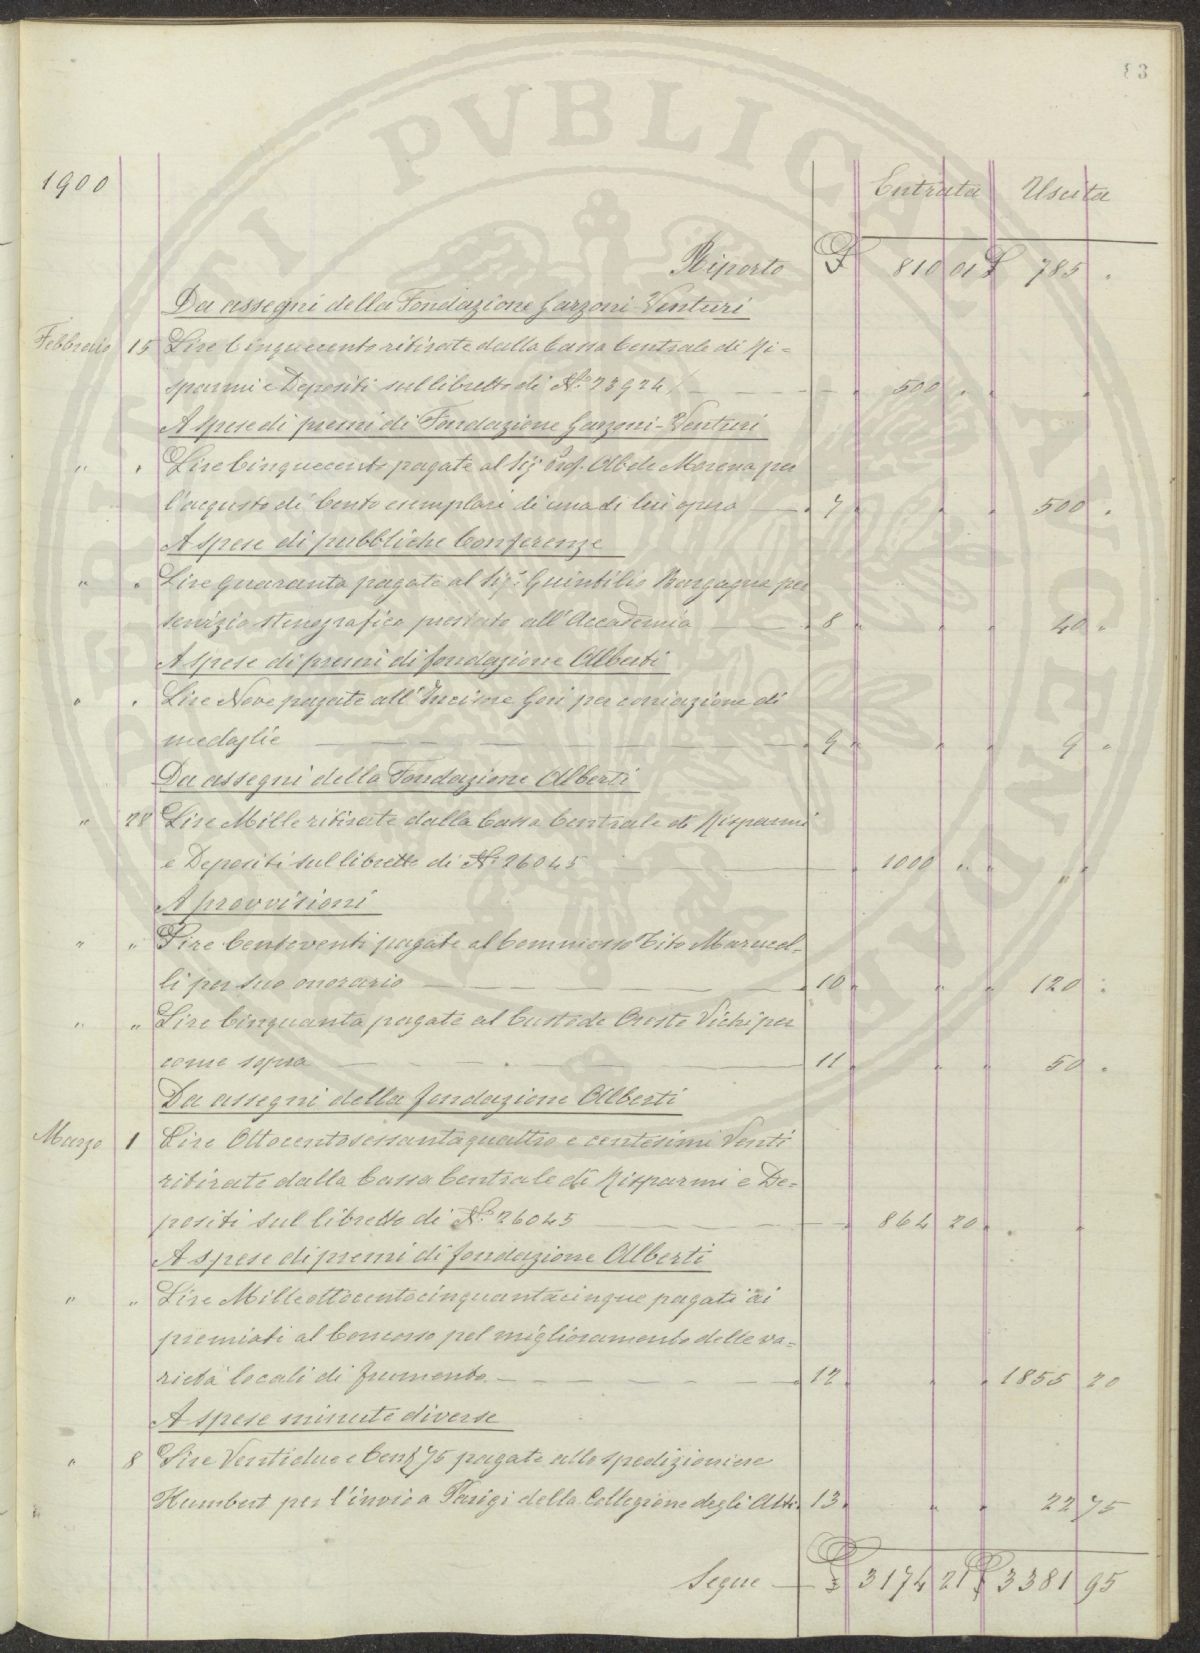 83
1900 Entrata Uscita
Riporto £ 810 01 £ 785 "
Da assegni della Fondazione Garzoni-Venturi
Febbraio 15 Lire Cinquecento ritirate dalla Cassa Centrale di Ri=
sparmi e Depositi sul libretto di N.º 23924 500 " "
A spese di premi di Fondazione Garzoni-Venturi
" " Lire Cinquecento pagate al Sig. Prof. Ab de Morena per
l'acquisto di Cento esemplari di una di lui opera 7 " " " 500 "
A spese di pubbliche Conferenze
" " Lire Quaranta pagate al Sig.r Quintilio Bargagna per
servizio stenografico prestato all'Accademia 8 " " " 40 "
A spese di premi di fondazione Alberti
" " Lire Nove pagate all'Incisore Gori per coniazione di
medaglie 9 " " " 9 "
Da assegni della Fondazione Alberti
" 28 Lire Mille ritirate dalla Cassa Centrale di Risparmi
e Depositi sul libretto di N.º 26045 1000 " " "
A provvisioni
" " Lire Centoventi pagate al Commesso Tito Marucel-
li per suo onorario 10 " " " 120 "
" " Lire Cinquanta pagate al Custode Oreste Vichi per
come sopra 11 " " " 50 "
Da assegni della fondazione Alberti
Marzo 1 Lire Ottocentosessantaquattro e centesimi Venti
ritirate dalla Cassa Centrale di Risparmi e De=
positi sul libretto di N.º 26045 864 20 " "
A spese di premi di fondazione Alberti
" " Lire Milleottocentocinquantacinque pagati ai
premiati al Concorso pel miglioramento delle va=
rietà locali di frumento 12 " " " 1855 20
A spese minute diverse
" 8 Lire Ventidue e Cent. 75 pagate allo spedizioniere
Humbert per l'invio a Parigi della Collezione degli Atti 13 " " " 22 75
Segue £ 3174 21 £ 3381 95